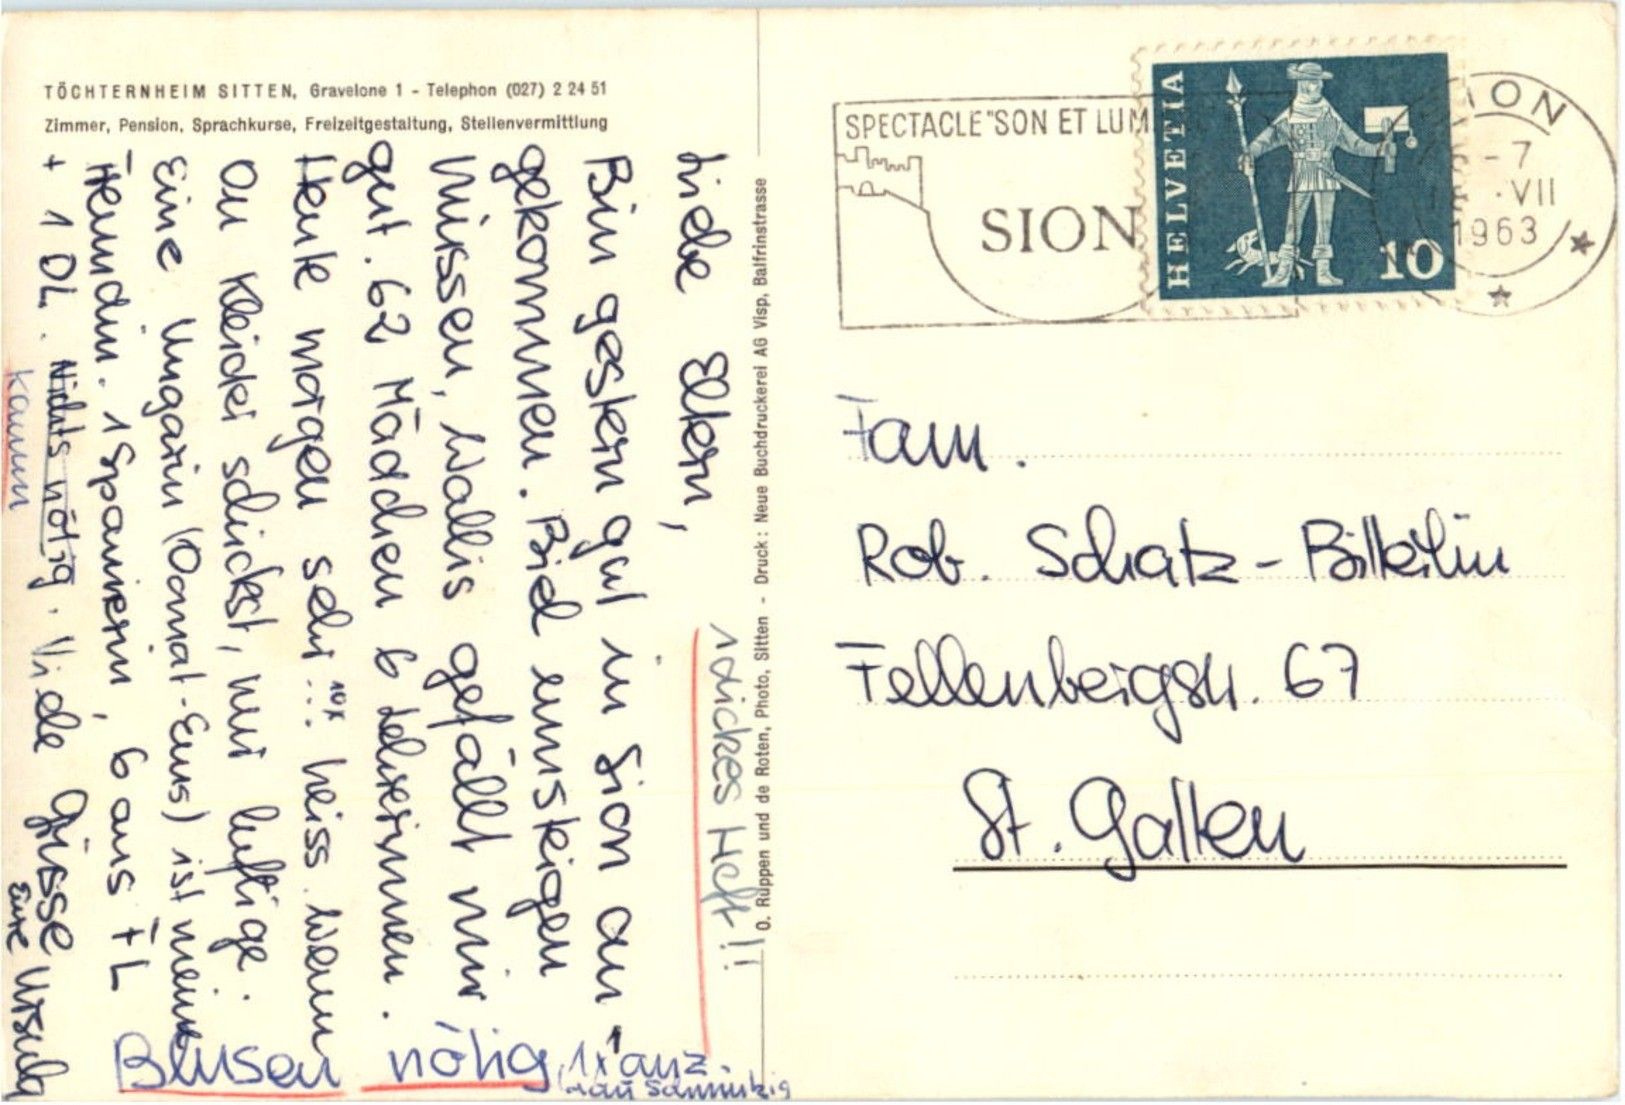 TÖCHTERNHEIM SITTEN, Gravelone 1 - Telephon (027) 2 24 51
Zimmer, Pension, Sprachkurse, Freizeitgestaltung, Stellenvermittlung
Liebe Eltern,
1 dickes Heft!!
Bin gestern gut in Sion an
gekommen. Bid umsteigen
müssen, Wallis gefällt mir
gut. 62 Mädchen 6 Lehrerinnen.
Heute morgen sehr ... 10x heiss. Wenn
du Kleider schickst, nur luftige.
Eine Ungarin (Oomat-Ems) ist meine
Freundin. 1 Spanierin, 6 aus FL
+ 1 DL. Nichts nötig. Viele Grüsse
kaum
Eure Ursula
Blusen nötig, 1x
O. Ruppen und de Roten, Photo, Sitten - Druck: Neue Buchdruckerei AG Visp, Balfrinstrasse
SPECTACLE "SON ET LUM
SION
HELVETIA
10
SION
-7
VII
1963
Fam.
Rob. Schatz-Bilkilin
Fellenbergstr. 67
St. Gallen